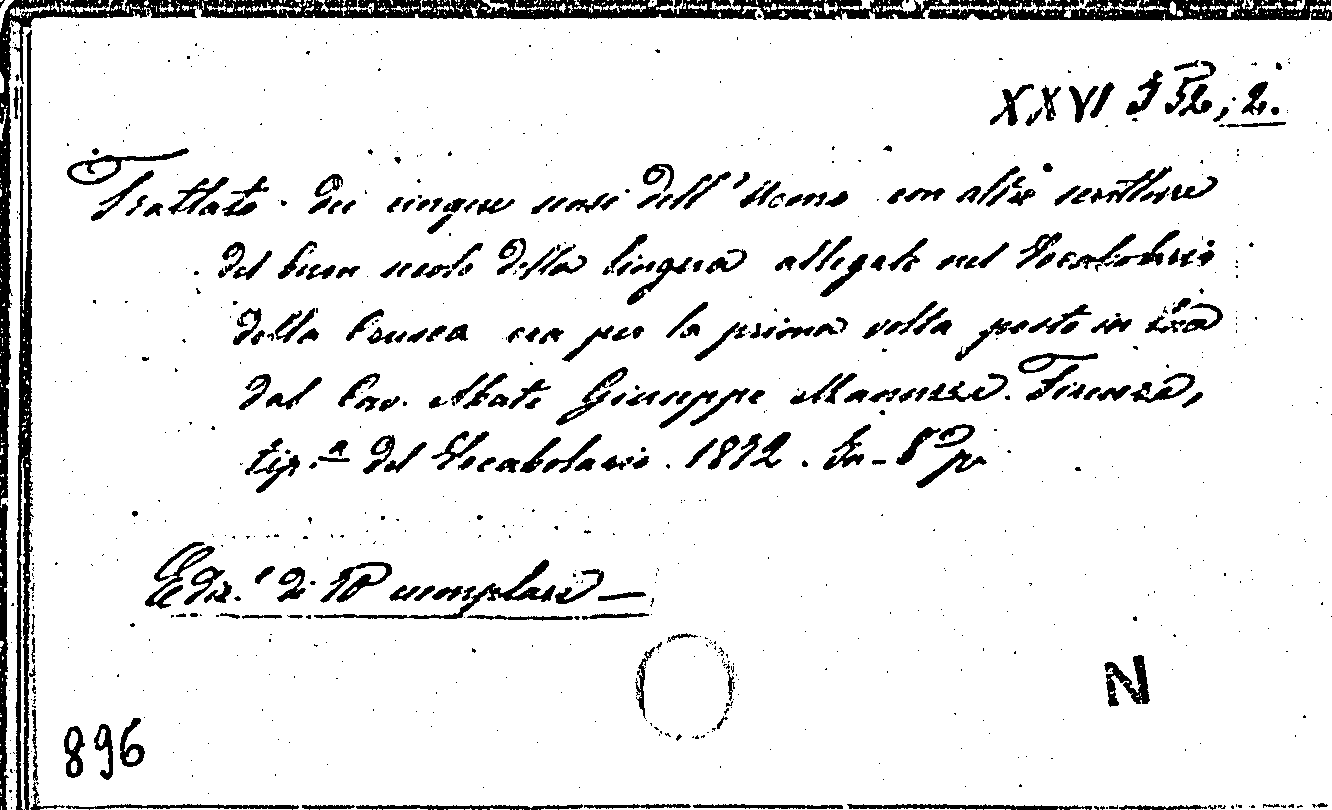 XXVI I 52, 2.
Trattato dei cinque sensi dell'Uomo con altre scritture
del buon secolo della lingua allegate nel Vocabolario
della Crusca ora per la prima volta poste in luce
dal Cav. Abate Giuseppe Manuzzi. Firenze,
tip.a del Vocabolario. 1872. In-8º p.
Ediz.e di 50 esemplari —
N
896